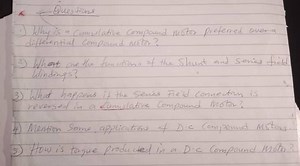 Questions
1) Why is a Cumulative Compound motor preferred over a
differential Compound motor?
2) What are the functions of the Shunt and Series field
windings?
3) What happens if the Series Field Connection is
reversed in a Cumulative Compound Motor?
4) Mention Some applications of D.c Compound Motors
5) How is torque produced in a D.c Compound Motor?